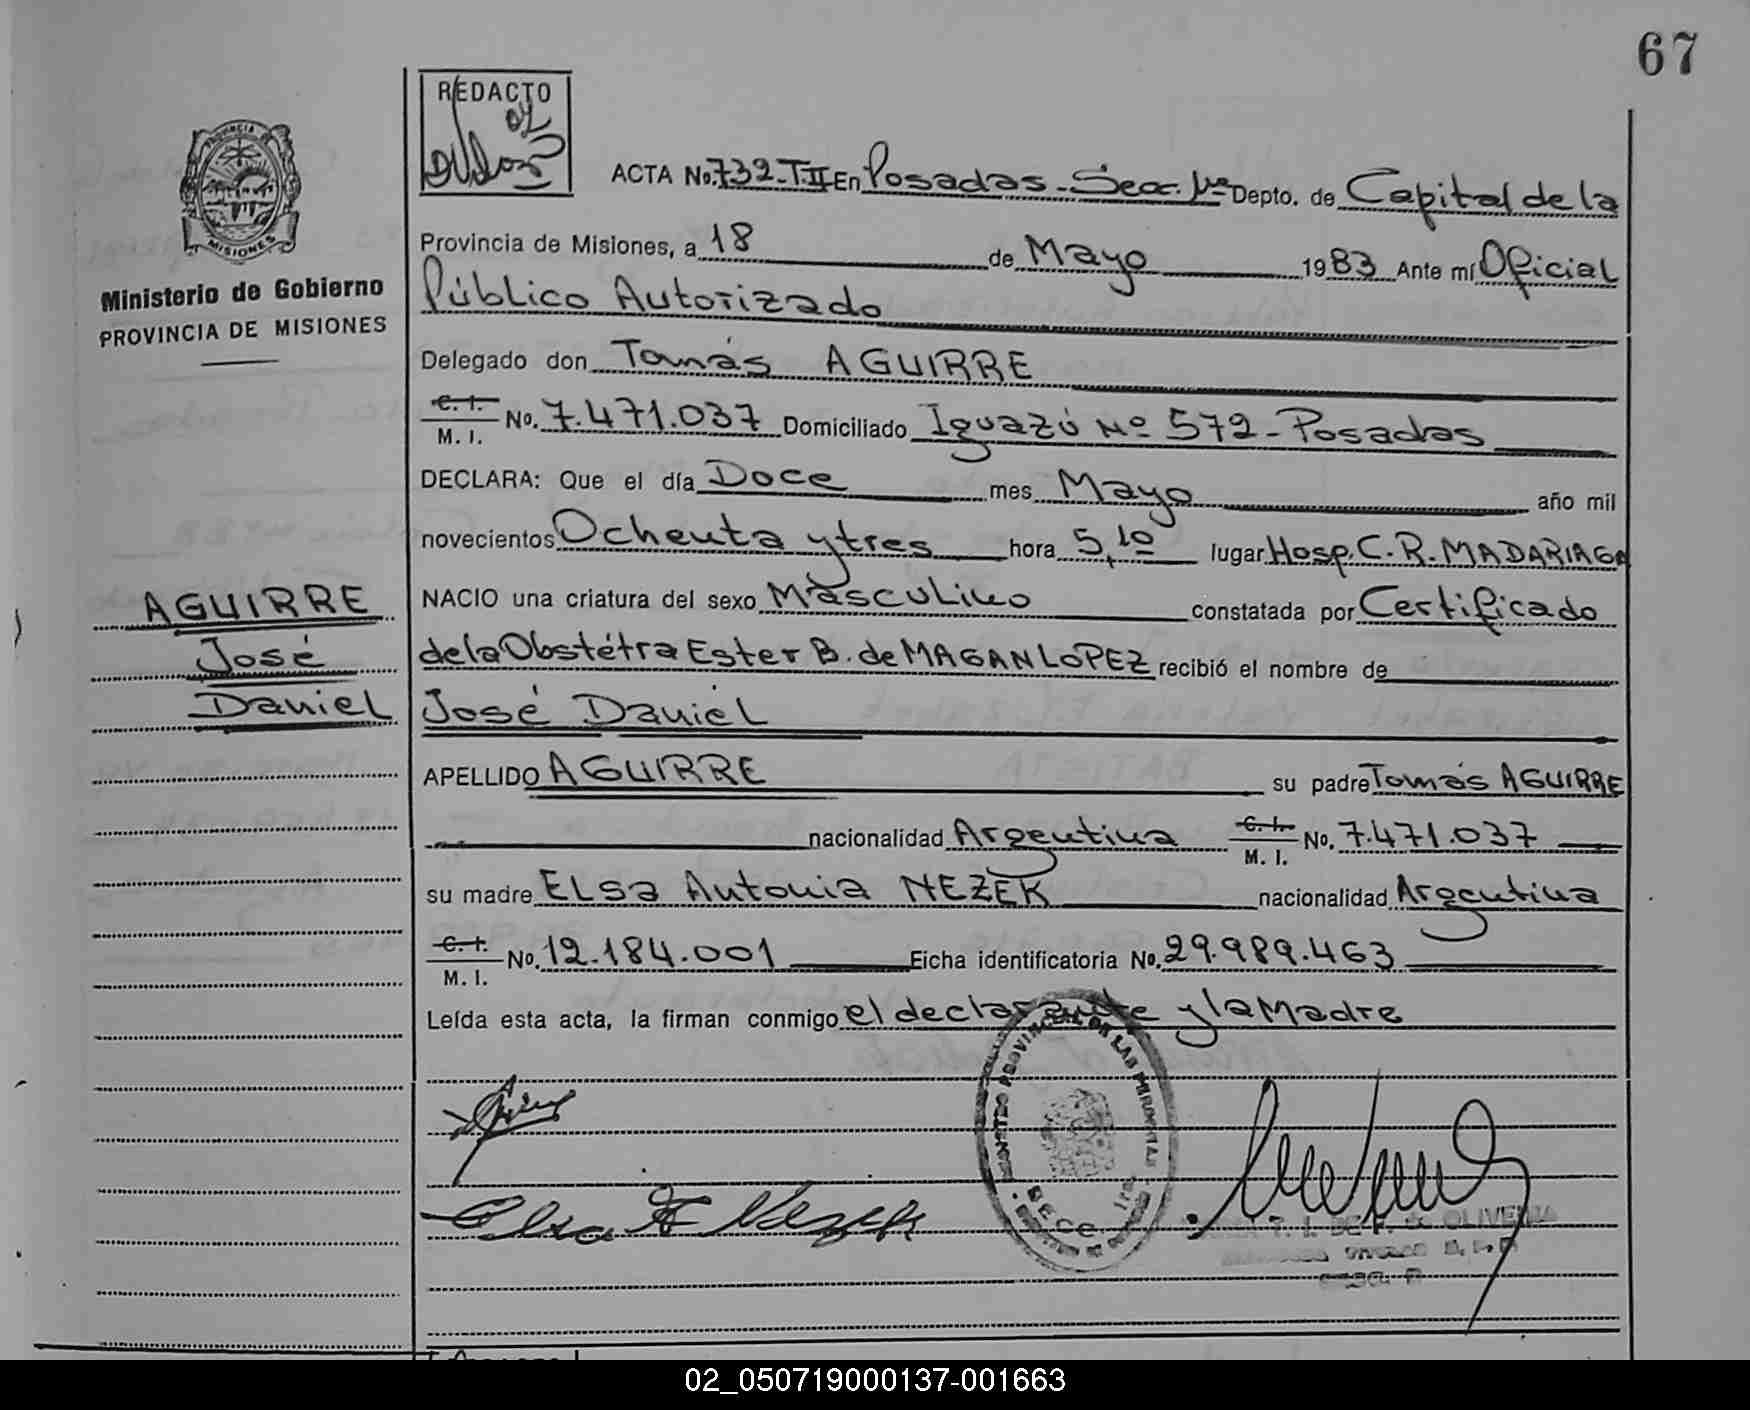 67
REDACTO
PROVINCIA DE
MISIONES
ACTA No. 732-T.II En Posadas-Secc. 1ra Depto. de Capital de la
Provincia de Misiones, a 18 de Mayo 1983 Ante mí Oficial
Ministerio de Gobierno
PROVINCIA DE MISIONES
Público Autorizado
Delegado don Tomás AGUIRRE
C. I.
M. I. No. 7.471.037 Domiciliado Iguazú Nº 572-Posadas
DECLARA: Que el día Doce mes Mayo año mil
novecientos Ochenta y tres hora 5,10 lugar Hosp. C. R. MADARIAGA
AGUIRRE
José
Daniel
NACIO una criatura del sexo Masculino constatada por Certificado
de la Obstétra Ester B. de MAGAN LOPEZ recibió el nombre de
José Daniel
APELLIDO AGUIRRE su padre Tomás AGUIRRE
nacionalidad Argentina C. I. M. I. No. 7.471.037
su madre Elsa Antonia NEZEK nacionalidad Argentina
C. I.
M. I. No. 12.184.001 Ficha identificatoria No. 29.989.463
Leída esta acta, la firman conmigo el declarante y la Madre
Elsa A Nezek
REGISTRO PROVINCIAL DE LAS PERSONAS
SECC. 1ra.
de OLIVEIRA
02_050719000137-001663